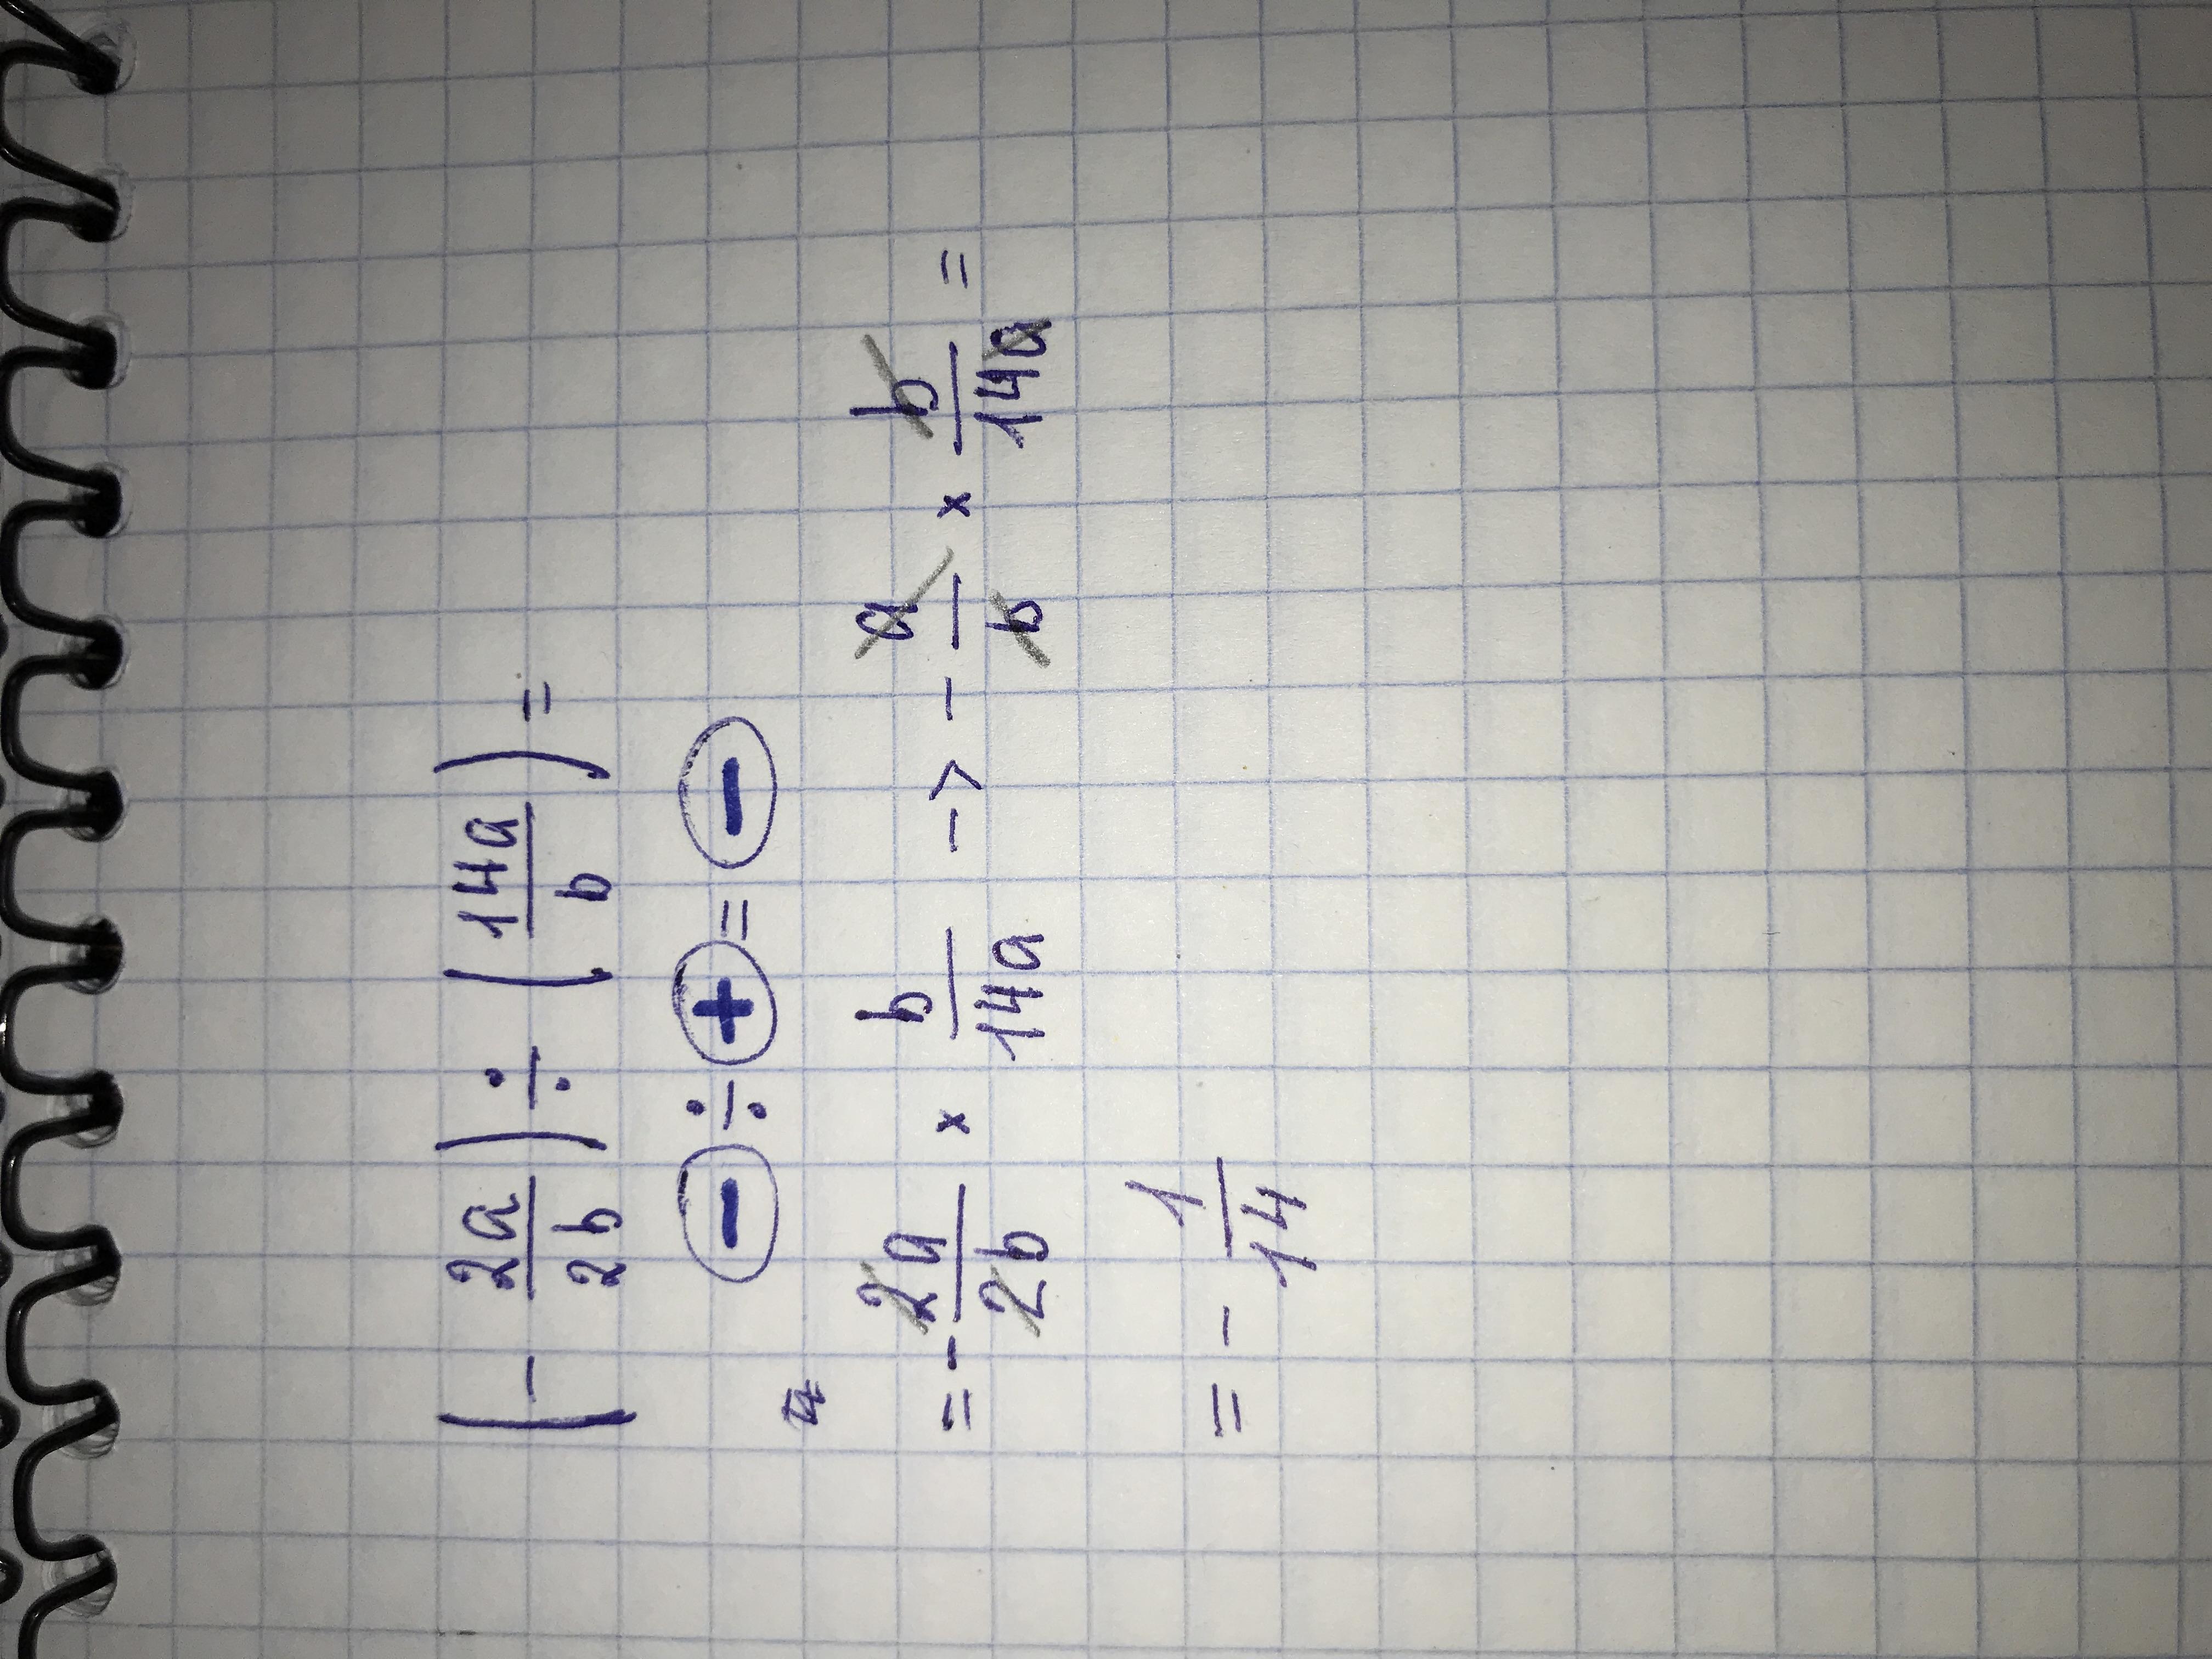 (- 2a/2b) ÷ (14a/b) =
- ÷ + = -
= - 2a/2b × b/14a -> - a/b × b/14a =
= - 1/14